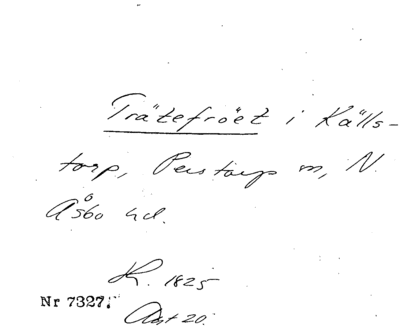 Trätefröet i Källs-
torp, Perstorp m, N.
Åsbo hd.
K. 1825
Nr 7327.
20.